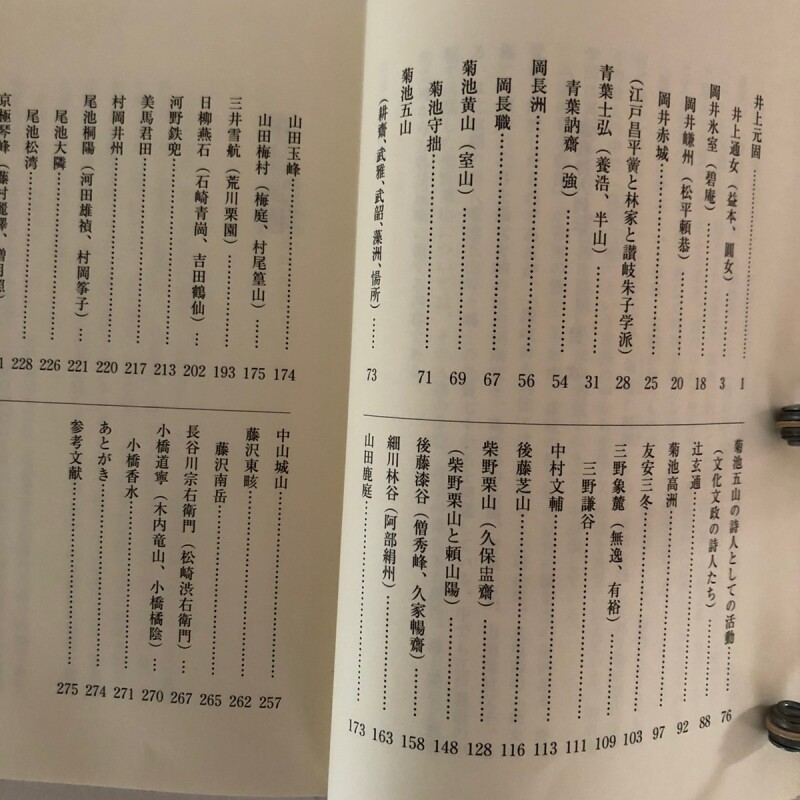 井上元固……1
井上通女（益本、圓女）……3
岡井氷室（碧庵）……18
岡井嵰州（松平頼恭）……20
岡井赤城……25
（江戸昌平黌と林家と讃岐朱子学派）……28
青葉士弘（養浩、半山）……31
青葉訥齋（強）……54
岡長洲……56
岡長職……67
菊池黄山（室山）……69
菊池守拙……71
菊池五山
（耕齋、武雅、武韶、藻洲、惕所）……73
菊池五山の詩人としての活動……76
（文化文政の詩人たち）……88
辻玄通……92
菊池高洲……97
友安三冬……103
三野象麓（無逸、有裕）……109
三野謙谷……111
中村文輔……113
後藤芝山……116
柴野栗山（久保盅齋）……128
（柴野栗山と頼山陽）……148
後藤漆谷（僧秀峰、久家暢齋）……158
細川林谷（阿部絹州）……163
山田鹿庭……173
山田玉峰……174
山田梅村（梅庭、村尾篁山）……175
三井雪航（荒川栗園）……193
日柳燕石（石崎青崗、吉田鶴仙）……202
河野鉄兜……213
美馬君田……217
村岡井州……220
尾池桐陽（河田雄禎、村岡筝子）……221
尾池大隣……226
尾池松湾……228
京極琴峰（藤村
中山城山……257
藤沢東畡……262
藤沢南岳……265
長谷川宗右衛門（松崎渋右衛門）……267
小橋道寧（木内竜山、小橋橘陰）……270
小橋香水……271
あとがき……274
参考文献……275